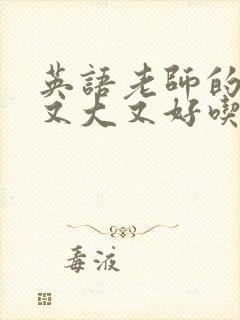 英語老師的
又大又好喫
毒液